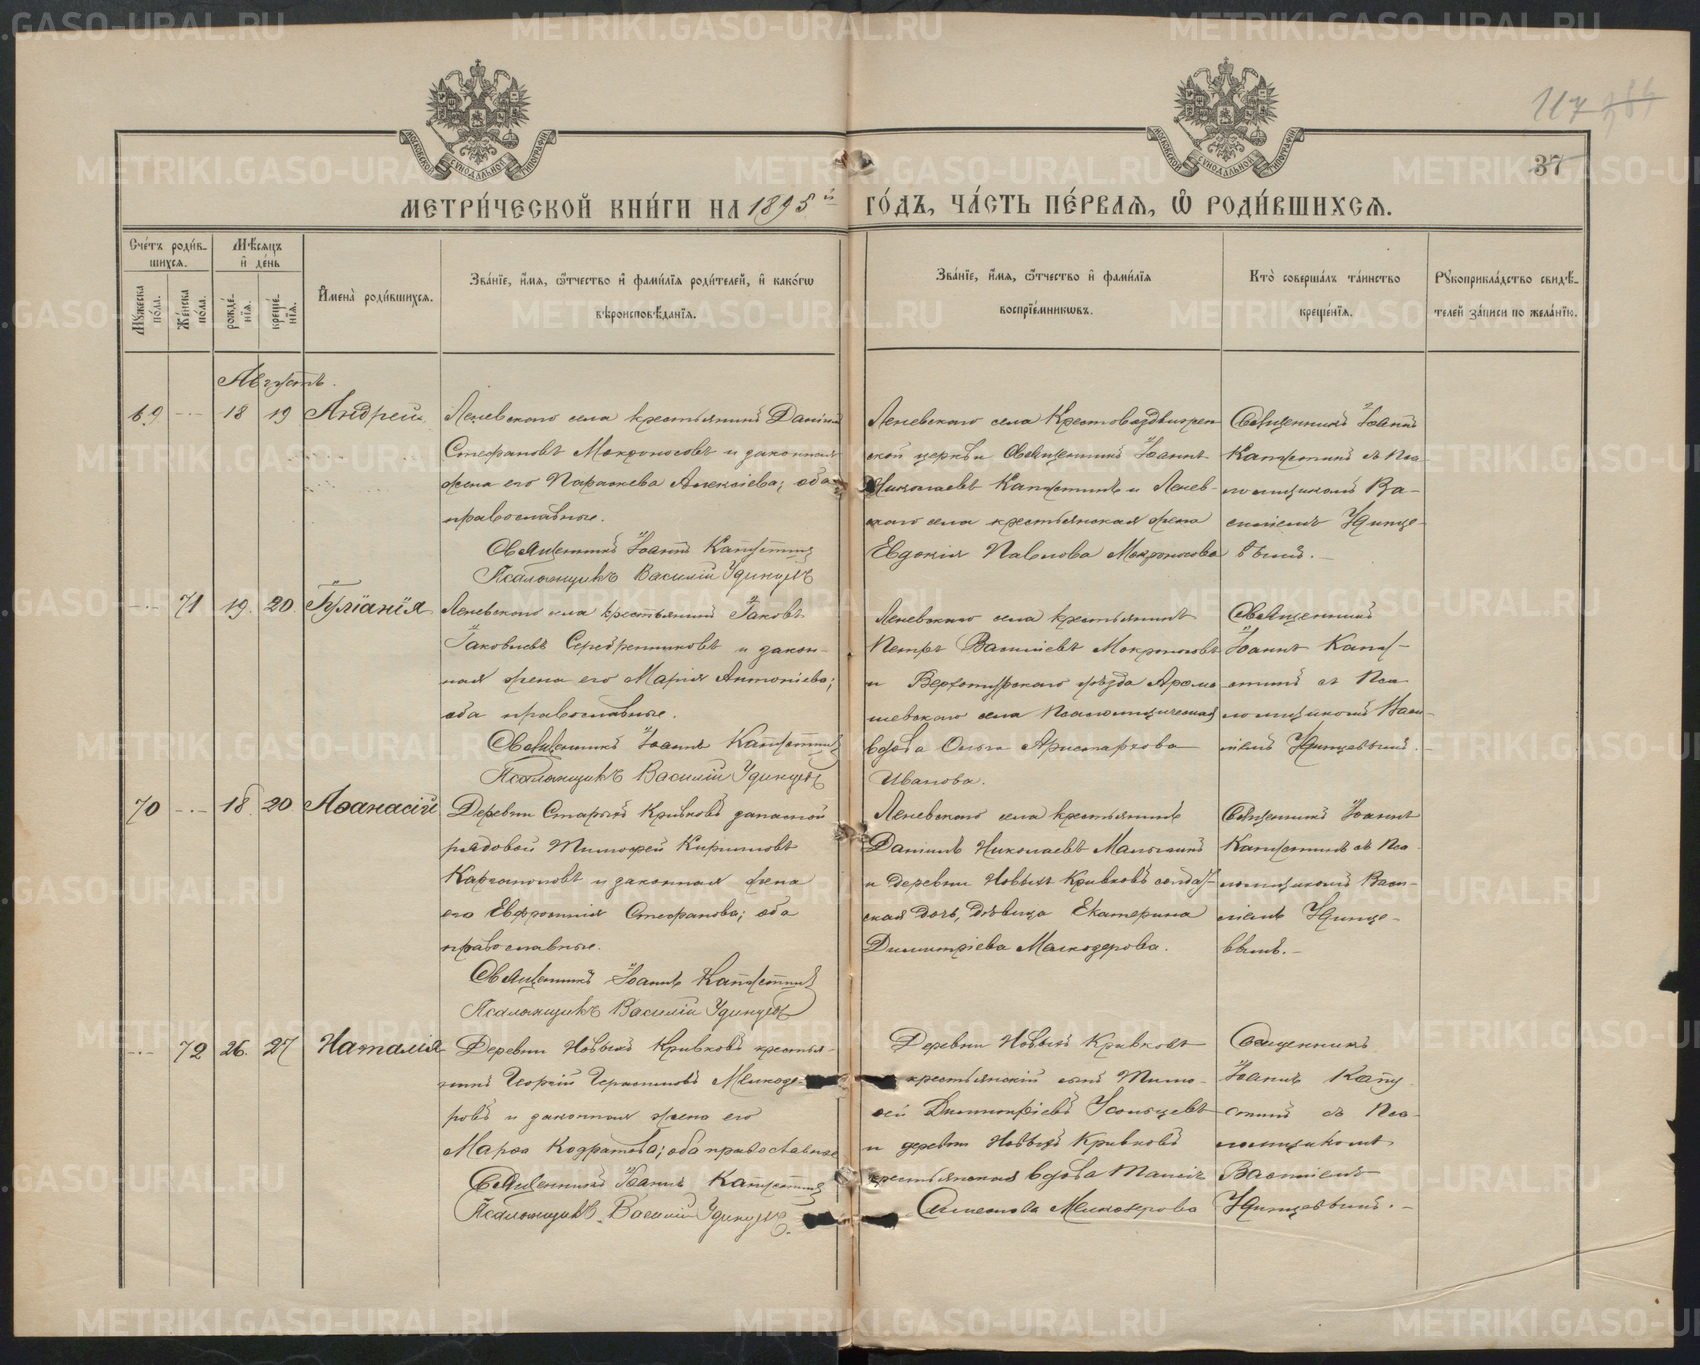 117 384
37
МЕТРИ́ЧЕСКОЙ КНИ́ГИ НА 1895й ГО́ДЪ, ЧА́СТЬ ПЕ́РВАѦ, Ѽ РОДИ́ВШИХСѦ.
Сче́тъ роди́в-
шихся.
Мѣ́сяцъ
и҆ де́нь
Мꙋ́жеска по́ла.
Же́нска по́ла.
рожде́-
нїѧ.
креще́-
нїѧ.
И҆мена̀ роди́вшихся.
Зва́нїе, и҆́мѧ, ѻ҆́тчество и҆ фами́лїѧ роди́телей, и҆ како́гѡ
вѣроисповѣ́данїѧ.
Зва́нїе, и҆́мѧ, ѻ҆́тчество и҆ фами́лїѧ
воспрїе́мникѡвъ.
Кто̀ соверша́лъ та́инство
креще́нїѧ.
Рꙋкоприкла́дство свидѣ́-
телей за́писи по жела́нїю.
Августъ.
69 18 19 Андрей
Леневскаго села крестьянинъ Даніилъ
Стефановъ Мокроносовъ и законная
жена его Параскева Алексіева; оба
православные.
Священникъ Іоаннъ Капустинъ
Псаломщикъ Василій Удинцевъ
Леневскаго села Крестовоздвижен-
ской церкви Священникъ Іоаннъ
Николаевъ Капустинъ и Ленев-
скаго села крестьянская жена
Евдокія Павлова Мокроносова
Священникъ Іоаннъ
Капустинъ съ Пса-
ломщикомъ Ва-
силіемъ Удинце-
вымъ.
71 19. 20 Іуліанія
Леневскаго села крестьянинъ Іаковъ
Іаковлевъ Серебренниковъ и закон-
ная жена его Марія Антоніева;
оба православные.
Священникъ Іоаннъ Капустинъ
Псаломщикъ Василій Удинцевъ
Леневскаго села крестьянинъ
Петръ Василіевъ Мокроносовъ
и Верхотурскаго уѣзда Арама-
шевскаго села Псаломщическая
вдова Ольга Аристархова
Иванова.
Священникъ
Іоаннъ Капу-
стинъ съ Пса-
ломщикомъ Васи-
ліемъ Удинцевымъ.
70 18 20 Аѳанасій
Деревни Старыхъ Кривковъ запасной
рядовой Тимофей Кирилловъ
Каргополовъ и законная жена
его Евфросинія Стефанова; оба
православные.
Священникъ Іоаннъ Капустинъ
Псаломщикъ Василій Удинцевъ
Леневскаго села крестьянинъ
Даніилъ Николаевъ Малыгинъ
и деревни Новыхъ Кривковъ солдат-
ская дочь, дѣвица Екатерина
Димитріева Мелкозерова.
Священникъ Іоаннъ
Капустинъ съ Пса-
ломщикомъ Васи-
ліемъ Удинце-
вымъ.
72 26. 27 Наталія
Деревни Новыхъ Кривковъ крестья-
нинъ Георгій Герасимовъ Мелкозе-
ровъ и законная жена его
Марѳа Кодратова; оба православные
Священникъ Іоаннъ Капустинъ
Псаломщикъ Василій Удинцевъ.
Деревни Новыхъ Кривковъ
крестьянскій сынъ Тимо-
фей Димитріевъ Усольцевъ
и деревни Новыхъ Кривковъ
крестьянская вдова Таисія
Симеонова Мелкозерова
Священникъ
Іоаннъ Капу-
стинъ съ Пса-
ломщикомъ
Василіемъ
Удинцевымъ.